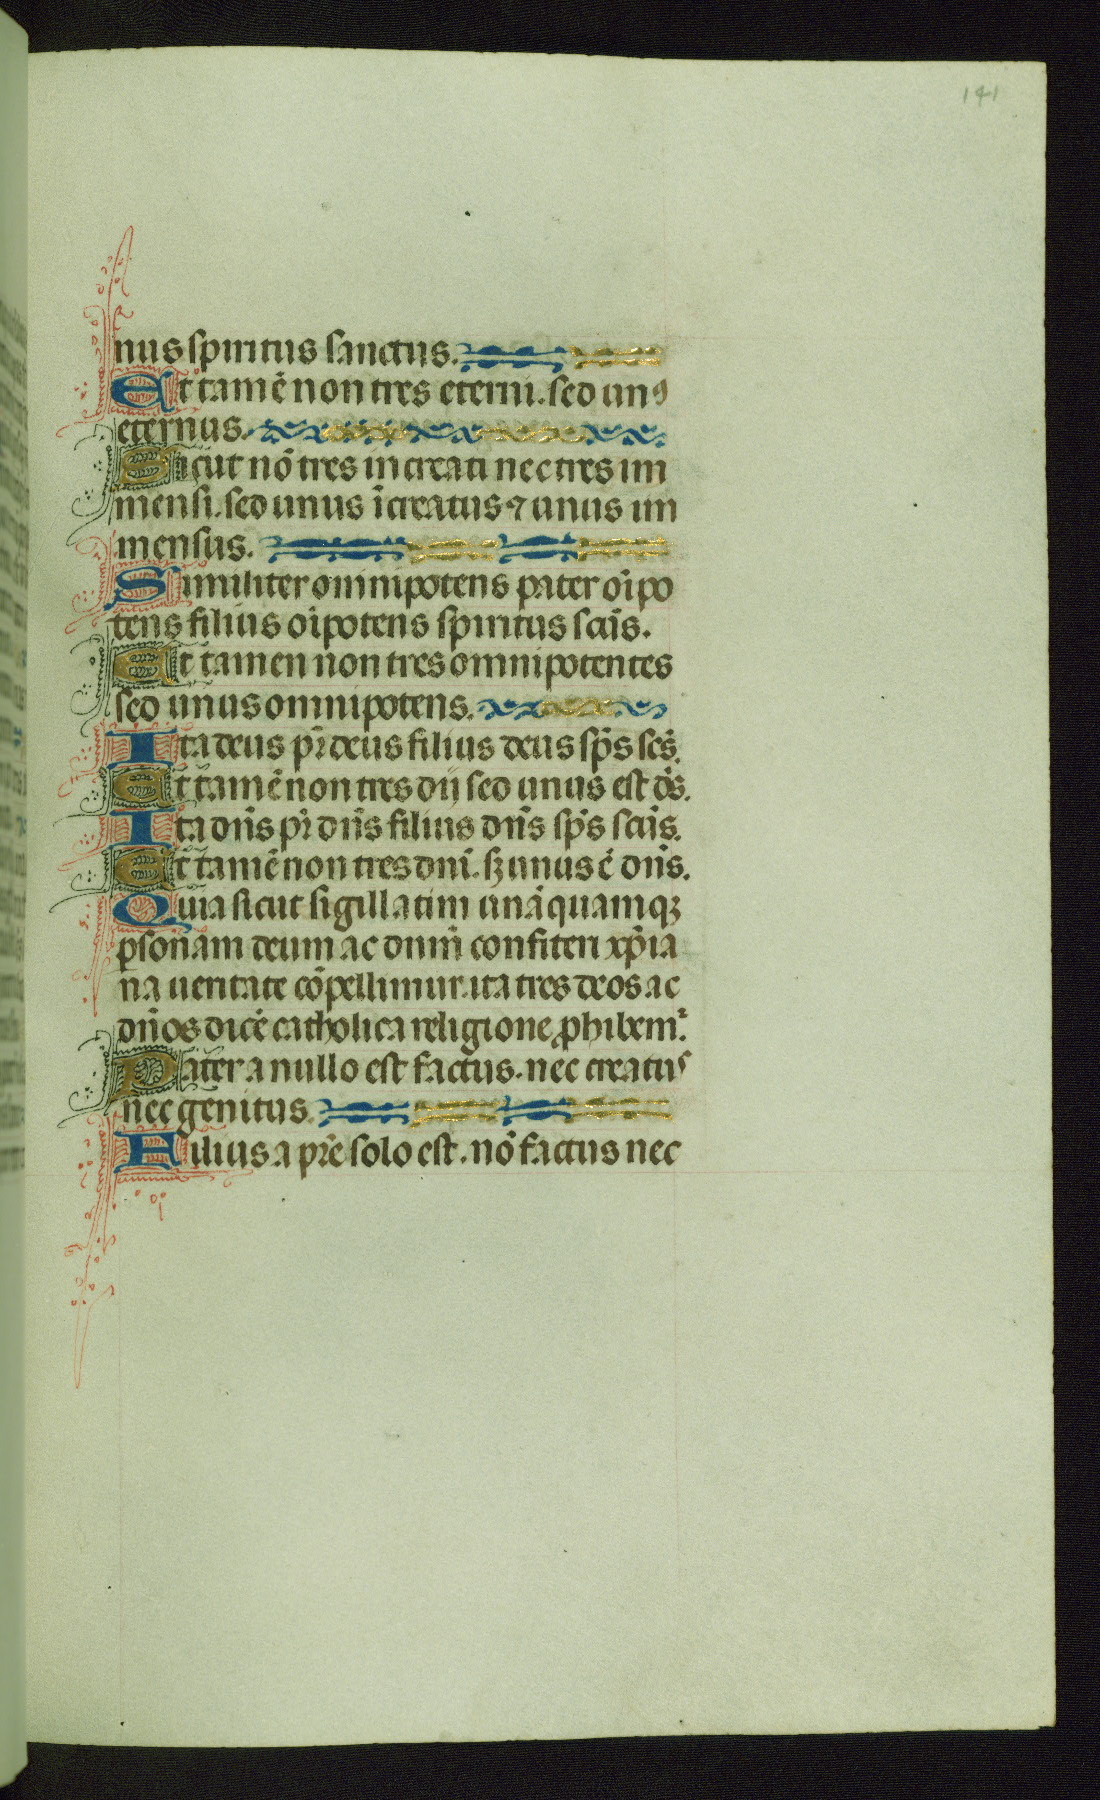 141
nus spiritus sanctus.
Et tamē non tres eterni. sed unꝰ
eternus.
Sicut nō tres increati nec tres im
mensi. sed unus īcreatus ⁊ unus im
mensus.
Similiter omnipotens pater oīpo
tens filius oīpotens spiritus scūs.
Et tamen non tres omnipotentes
sed unus omnipotens.
Ita deus pr̄ deus filius deus sp̄s scs̄.
Et tamē non tres dij sed unus est ds̄.
Ita dn̄s pr̄ dn̄s filius dn̄s sp̄s scūs.
Et tamē non tres dnī. sꝫ unus ē dn̄s.
Quia sicut sigillatim unāquamqꝫ
ꝑsonam deum ac dnm̄ confiteri xp̄ia
na ueritate cōpellimur. ita tres deos ac
dn̄os dicē catholica religione ꝓhibem̄.
Pater a nullo est factus. nec creatus
nec genitus.
Filius a prē solo est. nō factus nec